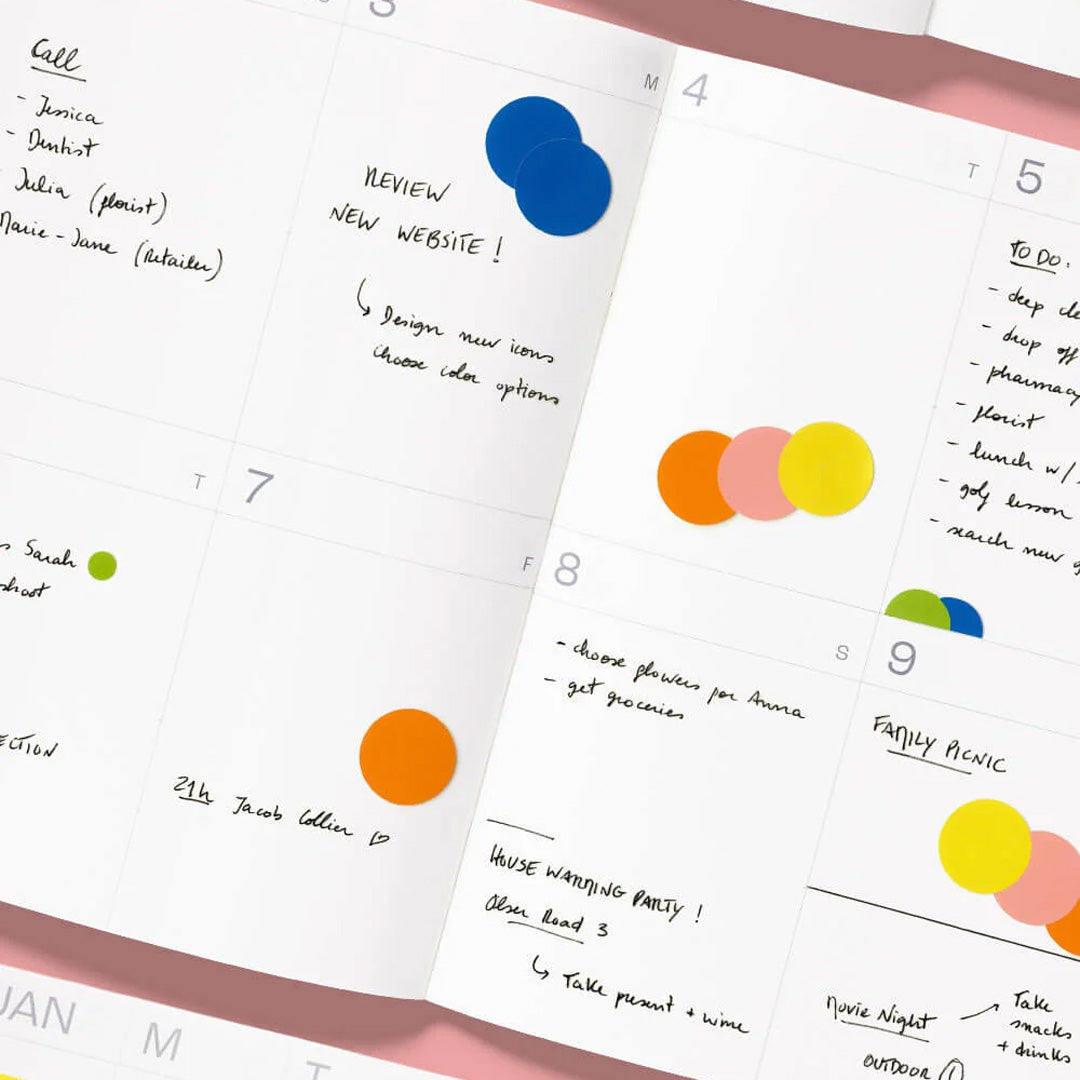 3
M
4
T
5
Call
- Jessica
- Dentist
Julia (florist)
Marie-Jane (retailer)
REVIEW
NEW WEBSITE!
↳ Design new icons
choose color options
TO DO:
- deep
- drop off
- pharmacy
- florist
- lunch w/
- golf lesson
- search new
T
7
F
8
S
9
Sarah
shoot
ECTION
21h Jacob Collier ♡
- choose flowers for Anna
- get groceries
HOUSE WARMING PARTY!
Road 3
↳ Take present + wine
FAMILY PICNIC
Movie Night → Take
snacks
+ drinks
OUTDOOR
JAN
M
T